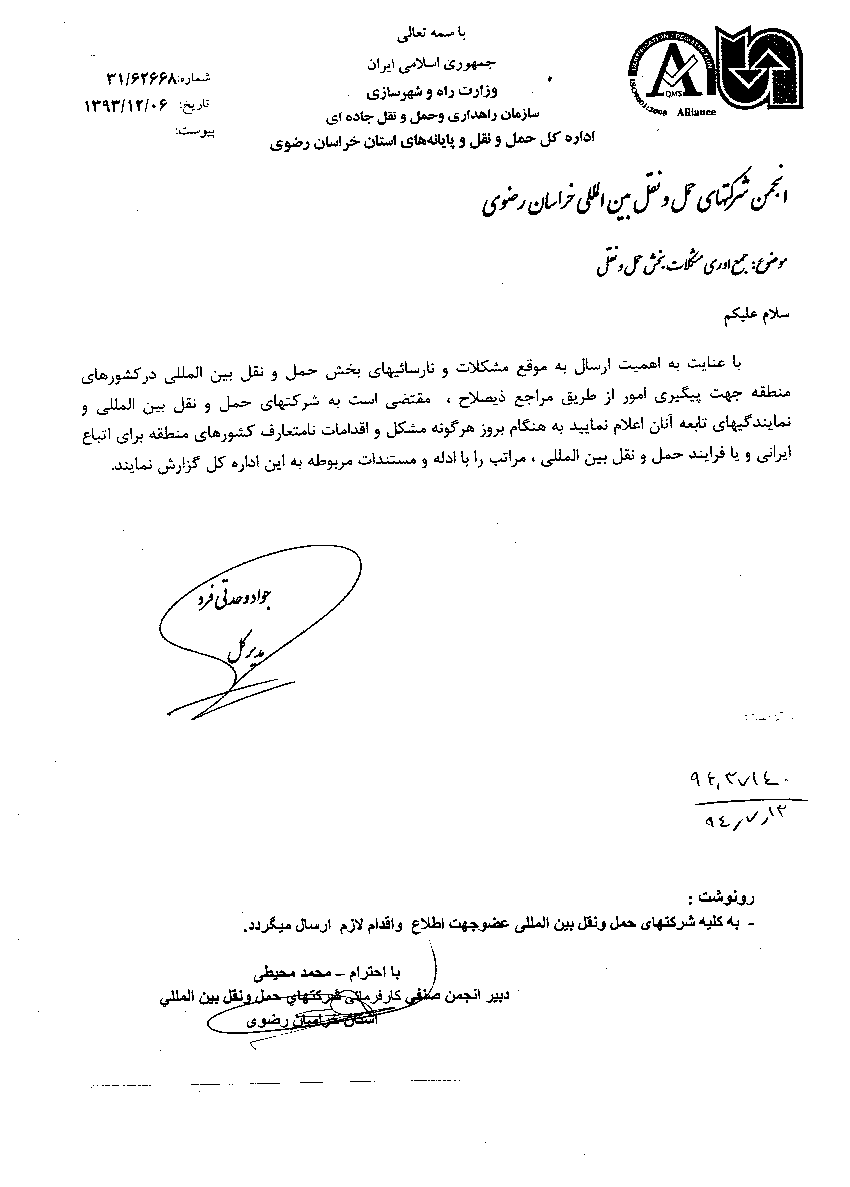 با سمه تعالی
جمهوری اسلامی ایران
وزارت راه و شهرسازی
سازمان راهداری وحمل و نقل جاده ای
اداره کل حمل و نقل و پایانه‌های استان خراسان رضوی
شماره: ۳۱/۶۲۶۶۸
تاریخ: ۱۳۹۳/۱۲/۰۶
پیوست:
CERTIFICATION / REGISTRATION
QMS
Alliance
انجمن شرکتهای حمل و نقل بین المللی خراسان رضوی
موضوع: جمع اوری مشکلات بخش حمل و نقل
سلام علیکم
با عنایت به اهمیت ارسال به موقع مشکلات و نارسائیهای بخش حمل و نقل بین المللی درکشورهای
منطقه جهت پیگیری امور از طریق مراجع ذیصلاح ، مقتضی است به شرکتهای حمل و نقل بین المللی و
نمایندگیهای تابعه آنان اعلام نمایید به هنگام بروز هرگونه مشکل و اقدامات نامتعارف کشورهای منطقه برای اتباع
ایرانی و یا فرایند حمل و نقل بین المللی ، مراتب را با ادله و مستندات مربوطه به این اداره کل گزارش نمایند.
جواد وحدتی فرد
مدیر کل
رونوشت :
- به کلیه شرکتهای حمل ونقل بین المللی عضوجهت اطلاع واقدام لازم ارسال میگردد.
با احترام – محمد محیطی
دبیر انجمن صنفی کارفرمائی شرکتهای حمل ونقل بین المللي
استان خراسان رضوی